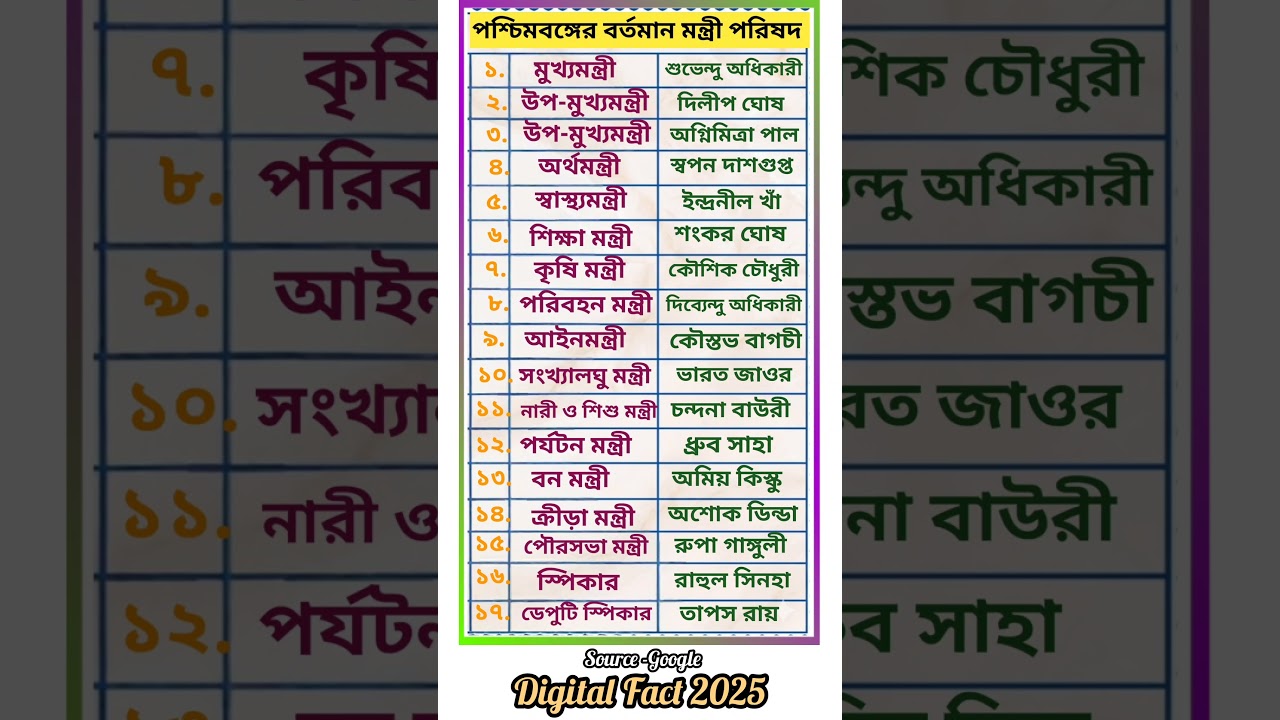 পশ্চিমবঙ্গের বর্তমান মন্ত্রী পরিষদ
১. মুখ্যমন্ত্রী শুভেন্দু অধিকারী
২. উপ-মুখ্যমন্ত্রী দিলীপ ঘোষ
৩. উপ-মুখ্যমন্ত্রী অগ্নিমিত্রা পাল
৪. অর্থমন্ত্রী স্বপন দাশগুপ্ত
৫. স্বাস্থ্যমন্ত্রী ইন্দ্রনীল খাঁ
৬. শিক্ষা মন্ত্রী শংকর ঘোষ
৭. কৃষি মন্ত্রী কৌশিক চৌধুরী
৮. পরিবহন মন্ত্রী দিব্যেন্দু অধিকারী
৯. আইনমন্ত্রী কৌস্তভ বাগচী
১০. সংখ্যালঘু মন্ত্রী ভারত জাওর
১১. নারী ও শিশু মন্ত্রী চন্দনা বাউরী
১২. পর্যটন মন্ত্রী ধ্রুব সাহা
১৩. বন মন্ত্রী অমিয় কিস্কু
১৪. ক্রীড়া মন্ত্রী অশোক ডিন্ডা
১৫. পৌরসভা মন্ত্রী রুপা গাঙ্গুলী
১৬. স্পিকার রাহুল সিনহা
১৭. ডেপুটি স্পিকার তাপস রায়
Source -Google
Digital Fact 2025